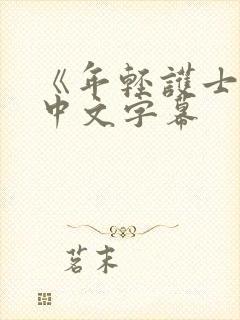 《年輕護士
中文字幕
茗末